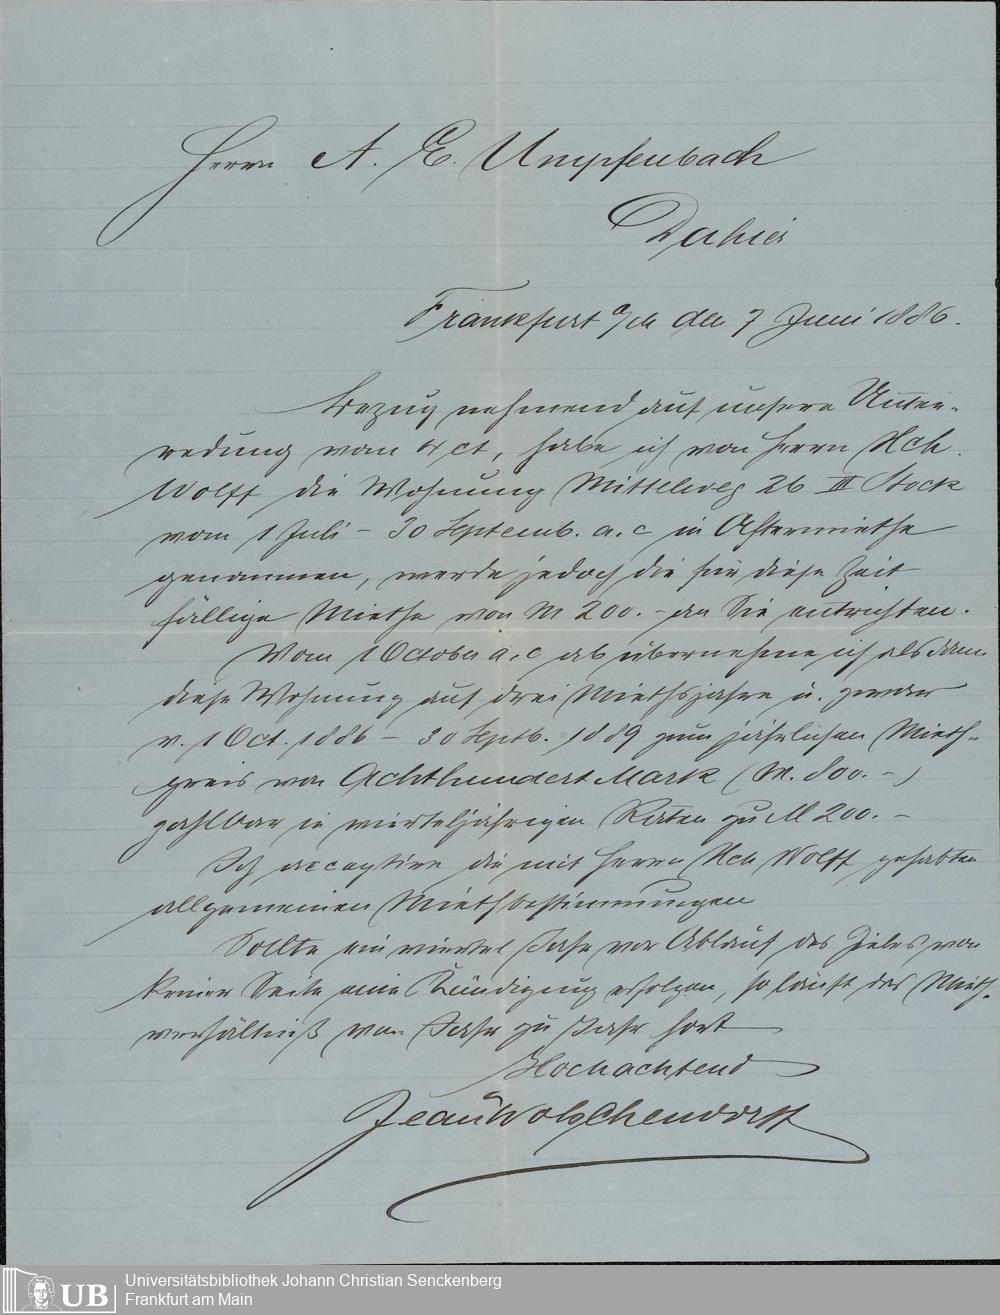 Herrn A. E. Umpfenbach
Dahier
Frankfurt a/M den 7 Juni 1886.
Bezug nehmend auf unsere Unter-
redung vom 4 ct, habe ich von Herrn Hch.
Wolff die Wohnung Mittelweg 26 III Stock
vom 1 Juli – 30 Septemb. a. c in Aftermiethe
genommen, werde jedoch die für diese Zeit
fällige Miethe von M 200. – an Sie entrichten.
Vom 1 October a. c ab übernehme ich alsdann
diese Wohnung auf drei Miethsjahre u. zwar
v. 1 Oct. 1886 – 30 Septb. 1889 zum jährlichen Mieth-
preis von Achthundert Mark (M. 800. –)
zahlbar in vierteljährigen Raten zu M 200. –
Ich acceptire die mit Herrn Hch Wolff gehabten
allgemeinen Miethbestimmungen
Sollte ein viertel Jahr vor Ablauf des Zieles von
keiner Seite eine Kündigung erfolgen, so läuft das Mieth-
verhältniß von Jahr zu Jahr fort
Hochachtend
Jean Wolschendorff
UB
Universitätsbibliothek Johann Christian Senckenberg
Frankfurt am Main